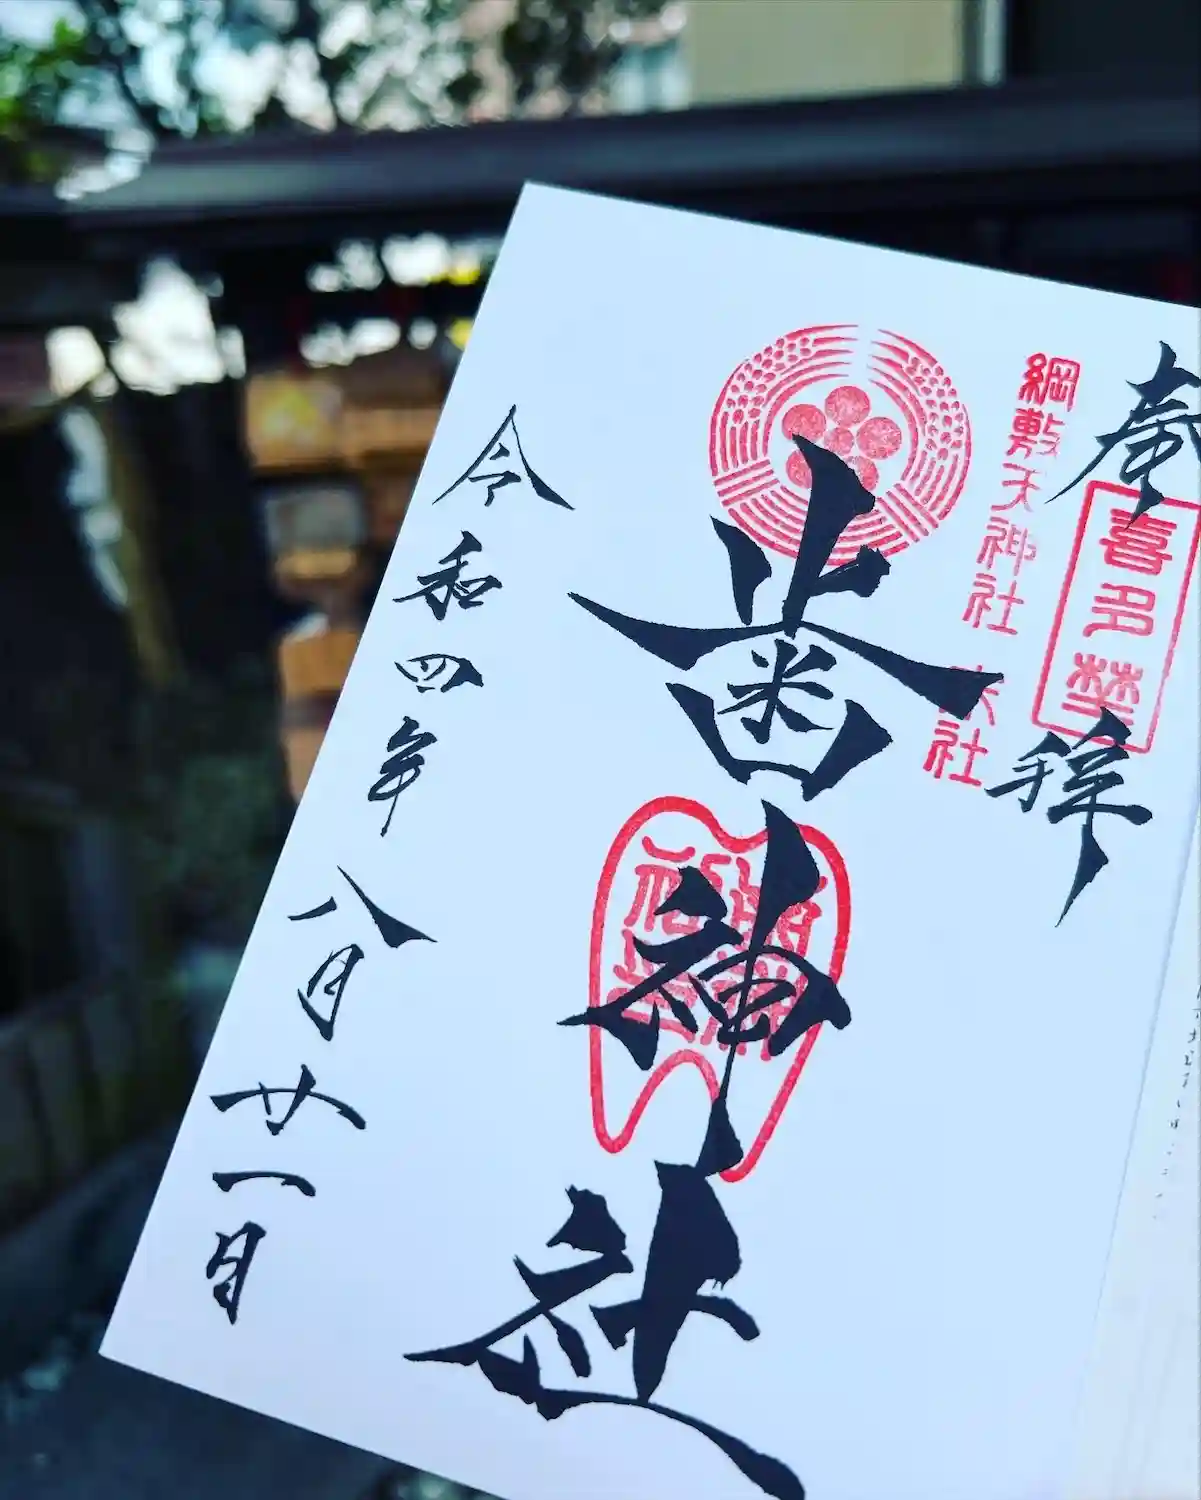 奉拝
喜多埜
綱敷天神社 末社
歯神社
令和四年八月廿一日